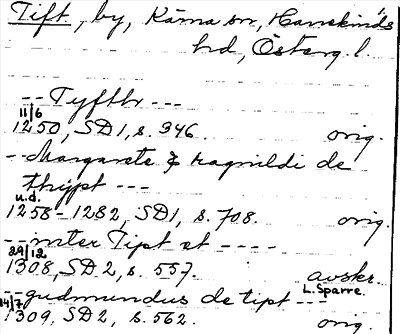 Tift, by, Kärna sn, Hanekinds
hd, Österg. l.
-- Tyfthr ---
11/6
1250, SD 1, s. 346. orig.
-- Margarete & ragnildi de
thypt ---
u.d.
1258-1282, SD 1, s. 708. orig.
-- inter Tipt et ----
29/12
1308, SD 2, s. 557. avskr.
L. Sparre.
-- gudmundus de tipt ---
14/7
1309, SD 2, s. 562. orig.